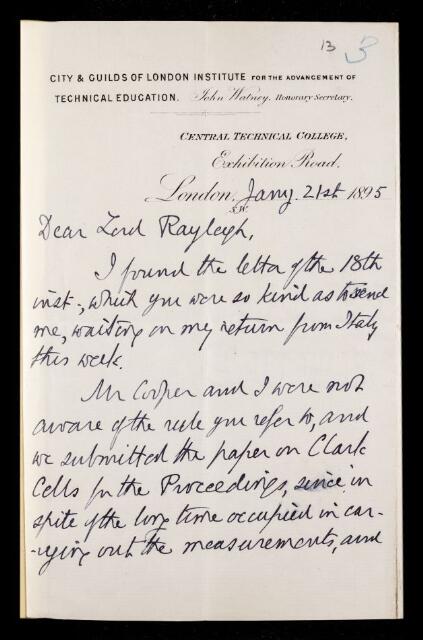 13 B
CITY & GUILDS OF LONDON INSTITUTE FOR THE ADVANCEMENT OF
TECHNICAL EDUCATION. John Watney, Honorary Secretary.
CENTRAL TECHNICAL COLLEGE,
Exhibition Road,
London, Jany. 21st 1895
S.W.
Dear Lord Rayleigh,
I found the letter of the 18th
inst., which you were so kind as to send
me, waiting on my return from Italy
this week.
Mr Cooper and I were not
aware of the rule you refer to, and
we submitted the paper on Clark
Cells for the Proceedings, since, in
spite of the long time occupied in car-
-rying out the measurements, and